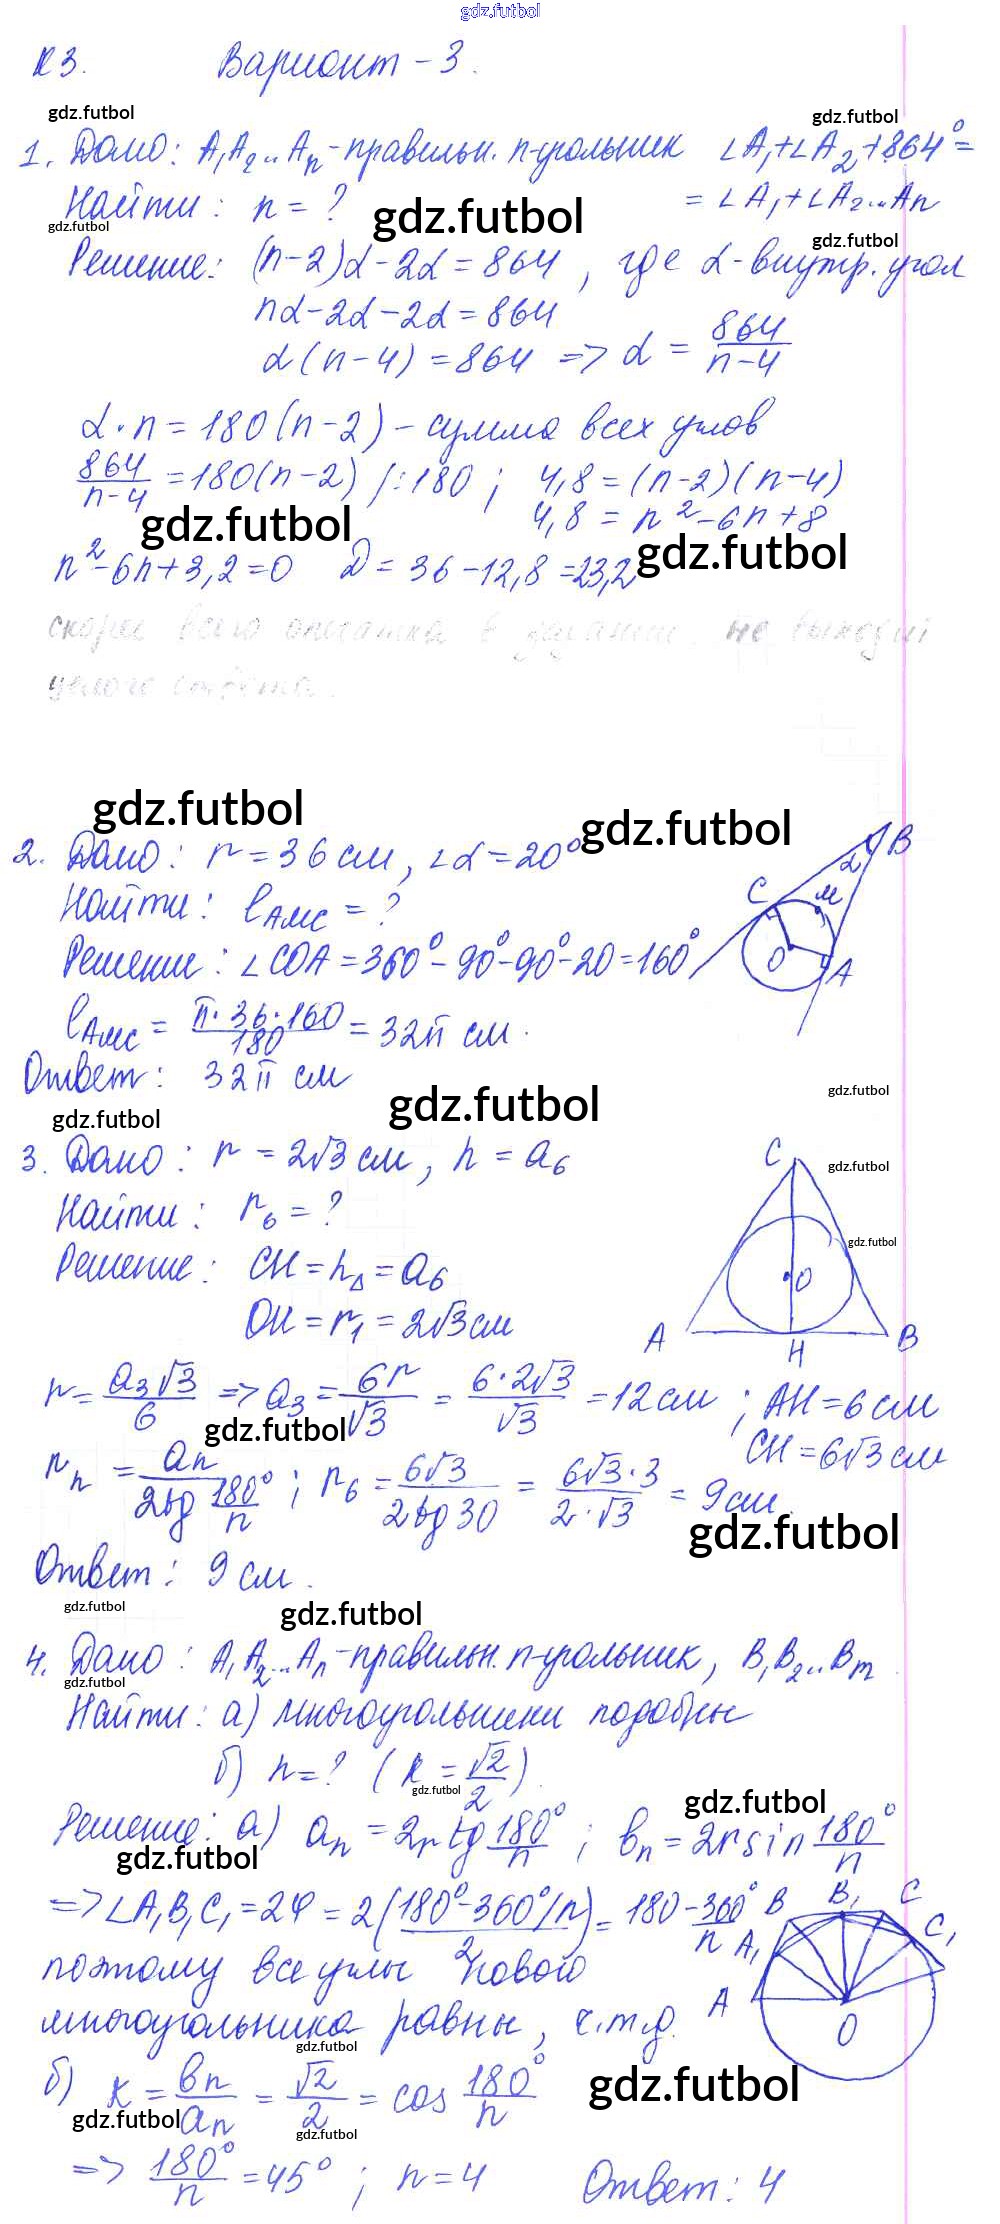 gdz.futbol
К3. Вариант - 3.
gdz.futbol gdz.futbol
1. Дано: A₁A₂..Aₙ - правильн. n-угольник ∠A₁+∠A₂+864°=
Найти: n = ? = ∠A₁+∠A₂..Aₙ
gdz.futbol gdz.futbol gdz.futbol
Решение: (n-2)α-2α=864, где α-внутр. угол
nα-2α-2α=864
α(n-4)=864 => α = 864/(n-4)
α·n=180(n-2) - сумма всех углов
864/(n-4) =180(n-2) /:180 ; 4,8 = (n-2)(n-4)
4,8 = n²-6n+8
gdz.futbol gdz.futbol
n²-6n+3,2=0 D = 36-12,8=23,2
скорее всего опечатка в задании. не выходит
целого ответа.
gdz.futbol gdz.futbol
2. Дано: r=36 см, ∠α=20°
Найти: lАМС = ?
Решение: ∠COA=360°-90°-90°-20=160°
lАМС = π·36·160/180 = 32π см.
Ответ: 32π см
B α C M O A
gdz.futbol gdz.futbol
gdz.futbol
3. Дано: r = 2√3 см, h = a₆
gdz.futbol
Найти: r₆ = ?
Решение: CH=hΔ=a₆
OH=r₁=2√3 см
C gdz.futbol O A H B
r= a₃√3/6 => a₃= 6r/√3 = 6·2√3/√3 =12 см ; AH=6 см
gdz.futbol CH=6√3 см
rₙ = aₙ/(2tg 180°/n) ; r₆ = 6√3/(2tg30) = 6√3·3/(2·√3) = 9 см.
gdz.futbol
Ответ: 9 см.
gdz.futbol gdz.futbol
4. Дано: A₁A₂..Aₙ - правильн. n-угольник, B₁B₂..Bm
gdz.futbol
Найти: а) многоугольники подобны
б) n=? (k = √2/2).
gdz.futbol gdz.futbol
Решение: а) aₙ=2r tg 180°/n ; bₙ=2r sin 180°/n
gdz.futbol
=> ∠A₁B₁C₁=2φ = 2(180°-360°/n)/2 = 180-360°/n
поэтому все углы нового
многоугольника равны, ч.т.д.
B B₁ C C₁ A₁ A O
gdz.futbol
б) k = bₙ/aₙ = √2/2 = cos 180°/n
gdz.futbol gdz.futbol
gdz.futbol
=> 180°/n =45° ; n=4 Ответ: 4